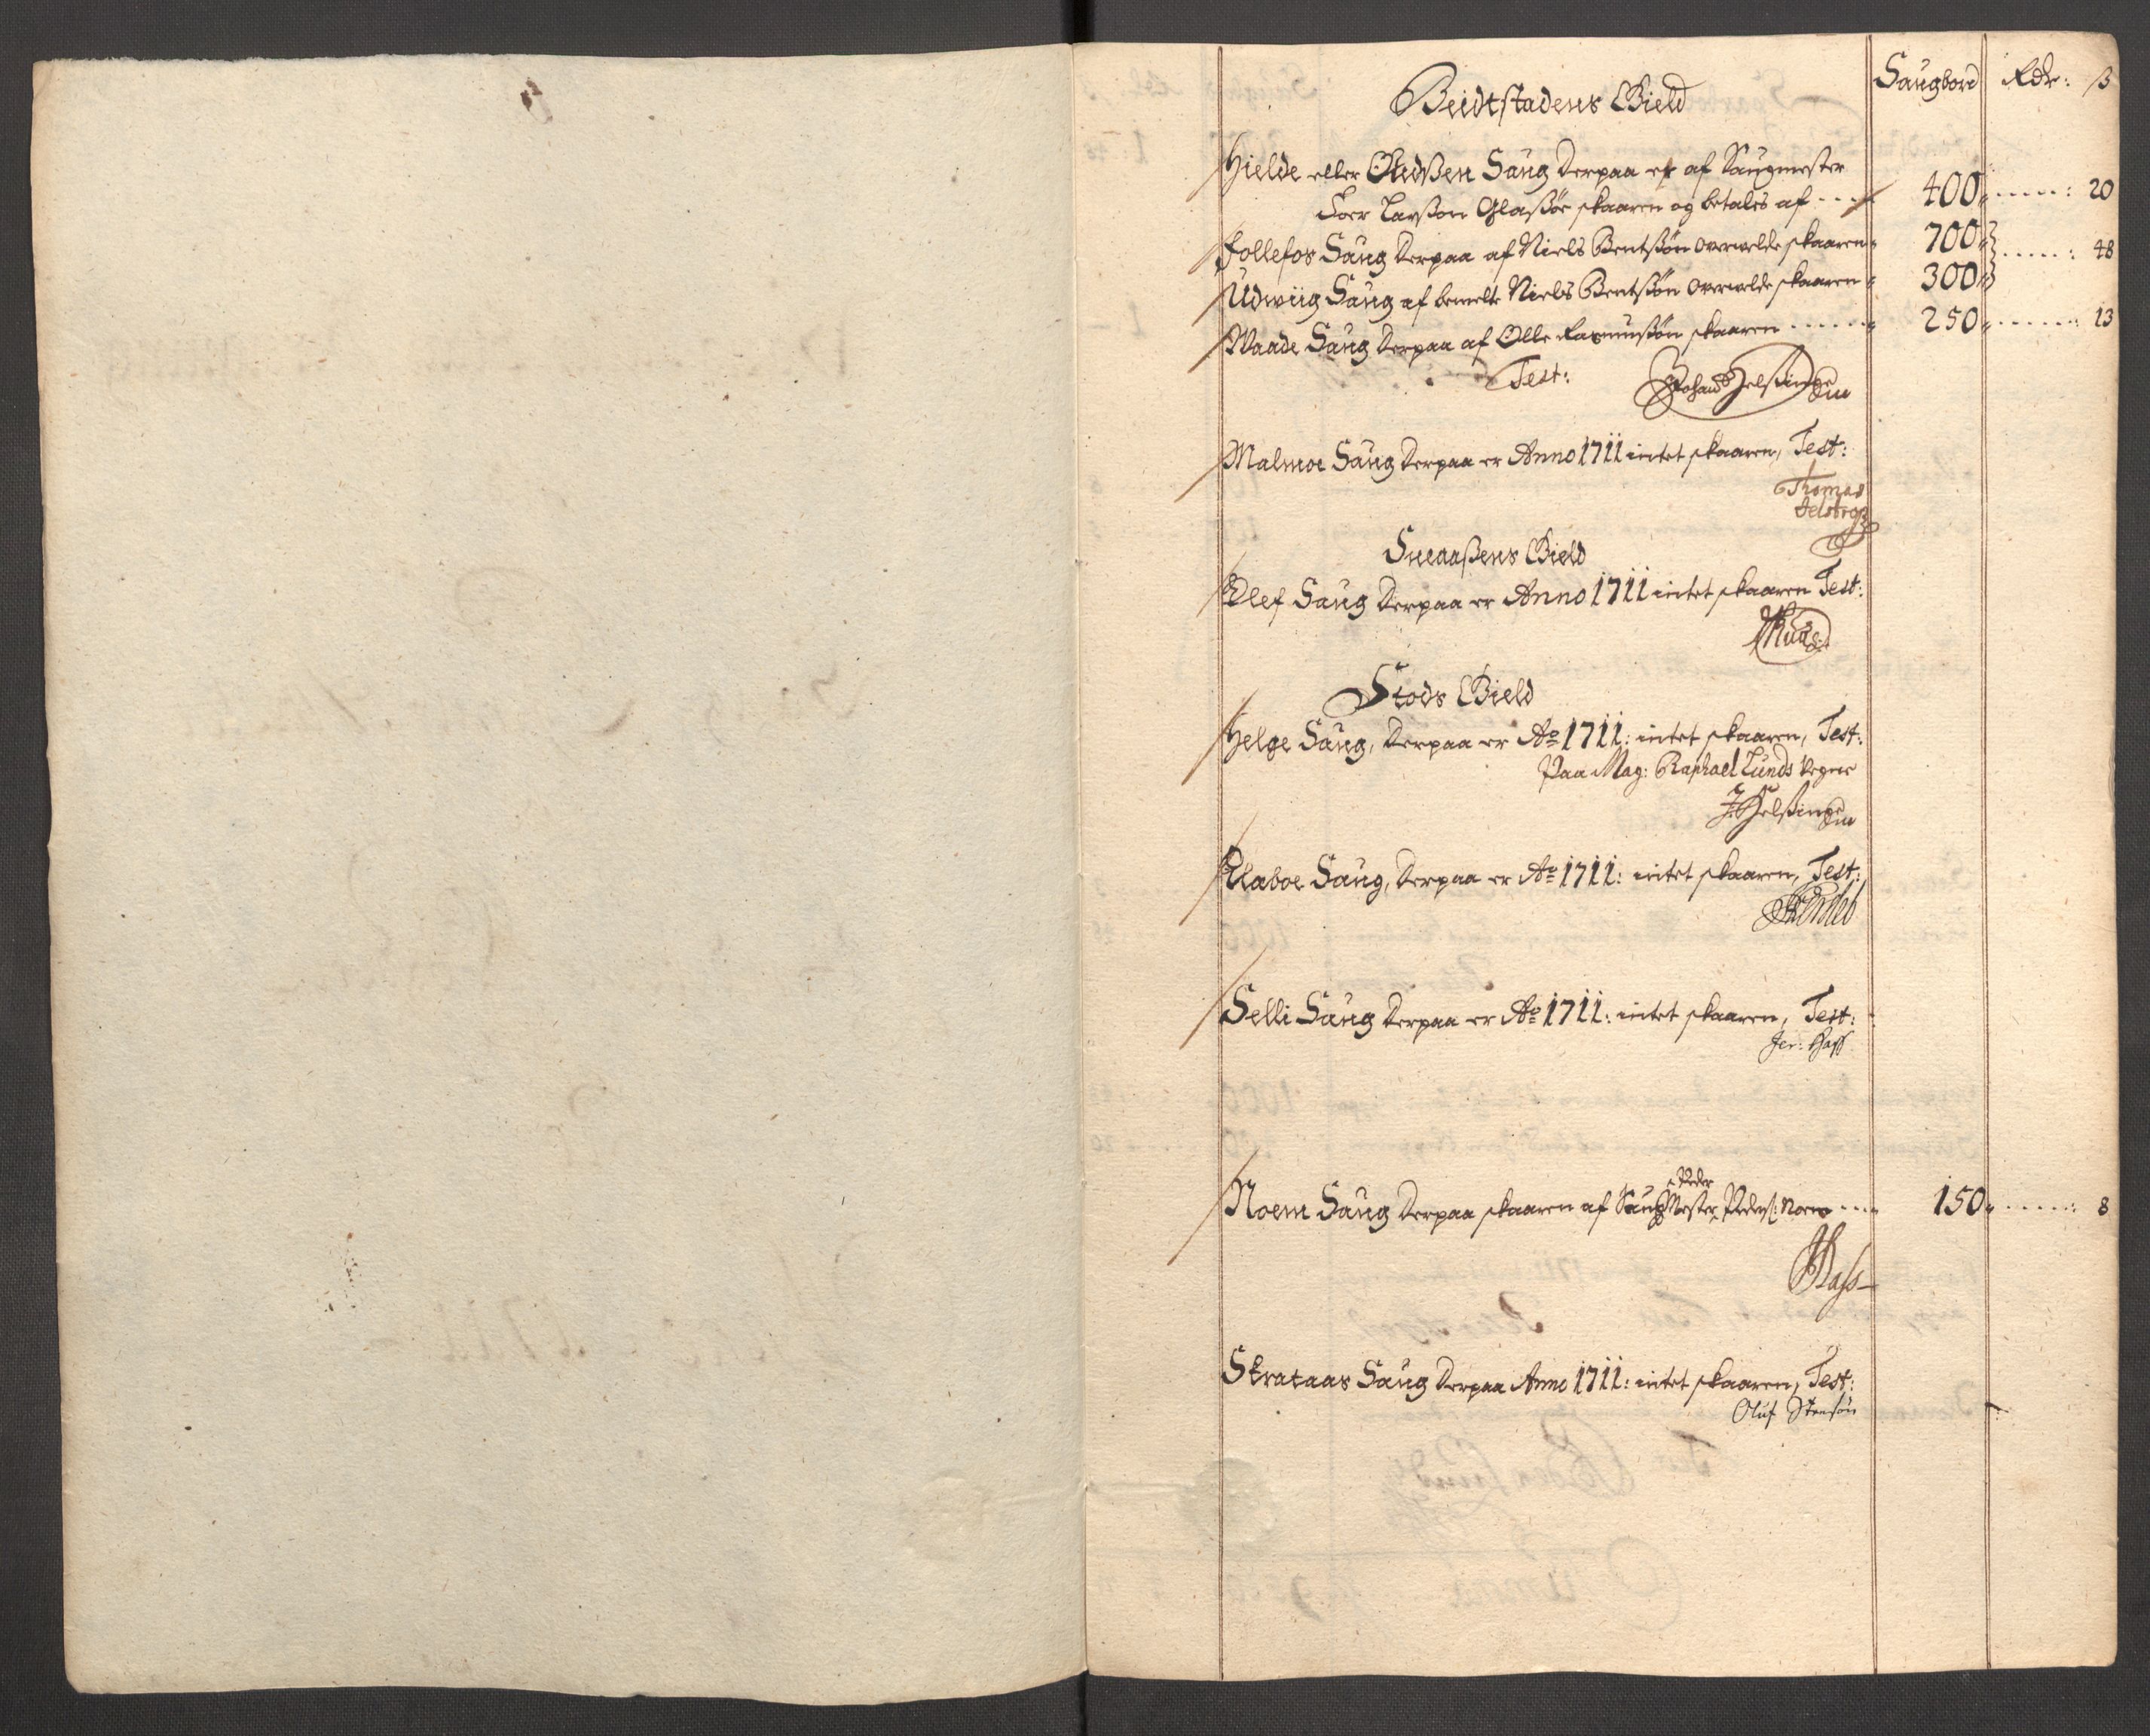 Saugbord Rdr: ß
Beidtstadens Gield
Hielde eller Østvßen Saug derpaa er af Saugmester
Joer Larßon Glaßøe skaaren og betales af 400 20
Follefos Saug derpaa af Niels Bentßøn Overvelde skaaren 700 48
Udwiig Saug af bemelte Niels Bentßøn Overvelde skaaren 300
Waade Saug derpaa af Olle Rasmußøn skaaren 250 13
Test: Johan Helßing
Malmoe Saug derpaa er Anno 1711 intet skaaren, Test:
Thomas
Snaaßens Gield
Elef Saug derpaa er Anno 1711 intet skaaren Test:
Stods Gield
Helge Saug, derpaa er Ao 1711: intet skaaren, Test:
Paa Mag: Raphael Lunds Vegne
J: Helßing
Elaboe Saug, derpaa er Ao 1711: intet skaaren, Test:
Selli Saug derpaa er Ao 1711: intet skaaren, Test:
Jer: Hass
Peder
Noem Saug derpaa skaaren af Saug Mester Peders: Noem 150 8
Hass
Strataas Saug derpaa Anno 1711: intet skaaren, Test:
Oluf Stensøn